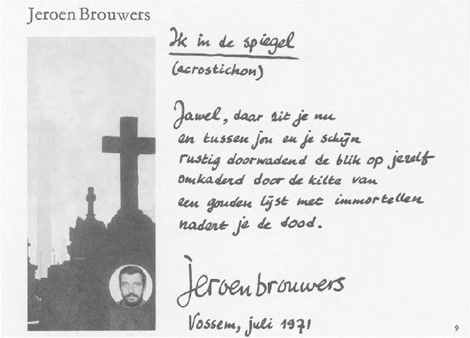 Jeroen Brouwers
Ik in de spiegel
(acrostichon)
Jawel, daar zit je nu
en tussen jou en je schijn
rustig doorwadend de blik op jezelf
omkaderd door de kilte van
een gouden lijst met immortellen
nadert je de dood.
jeroen brouwers
Vossem, juli 1971
9